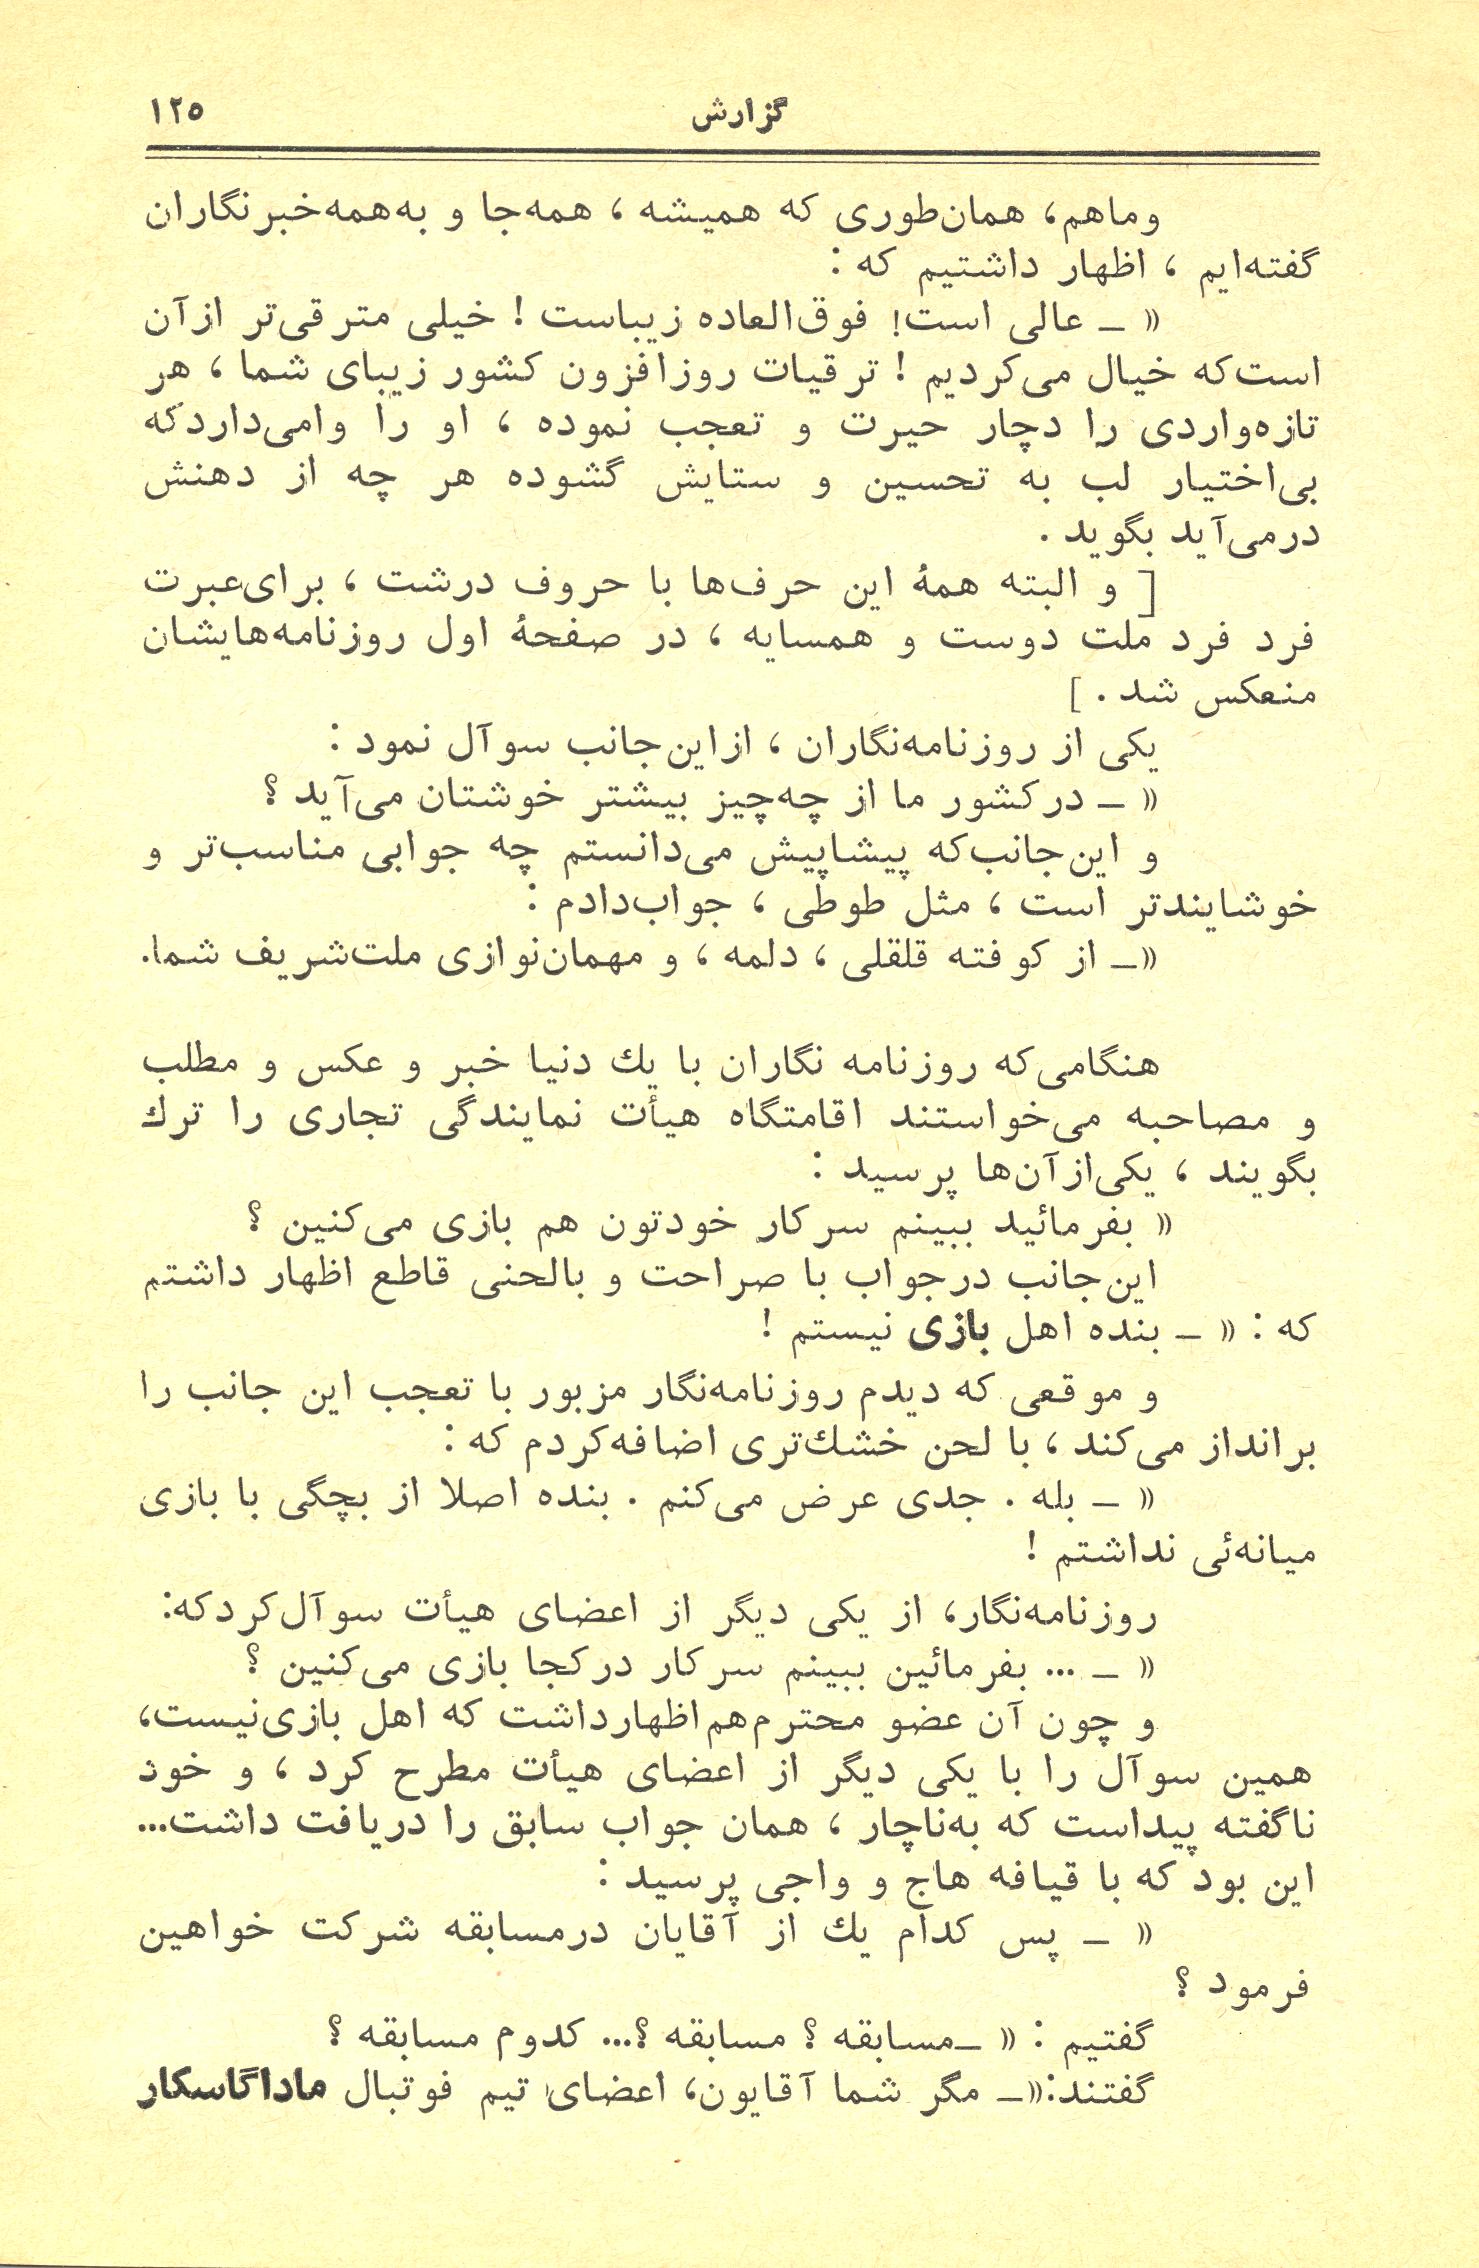 گزارش ۱۲۵
وماهم، همان‌طوری که همیشه ، همه‌جا و به‌همه‌خبرنگاران
گفته‌ایم ، اظهار داشتیم که :
« ـ عالی است! فوق‌العاده زیباست ! خیلی مترقی‌تر ازآن
است‌که خیال می‌کردیم ! ترقیات روزافزون کشور زیبای شما ، هر
تازه‌واردی را دچار حیرت و تعجب نموده ، او را وامی‌داردکه
بی‌اختیار لب به تحسین و ستایش گشوده هر چه از دهنش
درمی‌آید بگوید .
[ و البته همهٔ این حرف‌ها با حروف درشت ، برای‌عبرت
فرد فرد ملت دوست و همسایه ، در صفحهٔ اول روزنامه‌هایشان
منعکس شد . ]
یکی از روزنامه‌نگاران ، ازاین‌جانب سوآل نمود :
« ـ درکشور ما از چه‌چیز بیشتر خوشتان می‌آید ؟
و این‌جانب‌که پیشاپیش می‌دانستم چه جوابی مناسب‌تر و
خوشایندتر است ، مثل طوطی ، جواب‌دادم :
«ـ از کوفته قلقلی ، دلمه ، و مهمان‌نوازی ملت‌شریف شما.
هنگامی‌که روزنامه نگاران با یك دنیا خبر و عکس و مطلب
و مصاحبه می‌خواستند اقامتگاه هیأت نمایندگی تجاری را ترك
بگویند ، یکی‌ازآن‌ها پرسید :
« بفرمائید ببینم سرکار خودتون هم بازی می‌کنین ؟
این‌جانب درجواب با صراحت و بالحنی قاطع اظهار داشتم
که : « ـ بنده اهل بازی نیستم !
و موقعی که دیدم روزنامه‌نگار مزبور با تعجب این جانب را
برانداز می‌کند ، با لحن خشك‌تری اضافه‌کردم که :
« ـ بله . جدی عرض می‌کنم . بنده اصلا از بچگی با بازی
میانه‌ئی نداشتم !
روزنامه‌نگار، از یکی دیگر از اعضای هیأت سوآل‌کردکه:
« ـ ... بفرمائین ببینم سرکار درکجا بازی می‌کنین ؟
و چون آن عضو محترم‌هم‌اظهارداشت که اهل بازی‌نیست،
همین سوآل را با یکی دیگر از اعضای هیأت مطرح کرد ، و خود
ناگفته پیداست که به‌ناچار ، همان جواب سابق را دریافت داشت...
این بود که با قیافه هاج و واجی پرسید :
« ـ پس کدام یك از آقایان درمسابقه شرکت خواهین
فرمود ؟
گفتیم : « ـمسابقه ؟ مسابقه ؟... کدوم مسابقه ؟
گفتند:«ـ مگر شما آقایون، اعضای تیم فوتبال ماداگاسکار